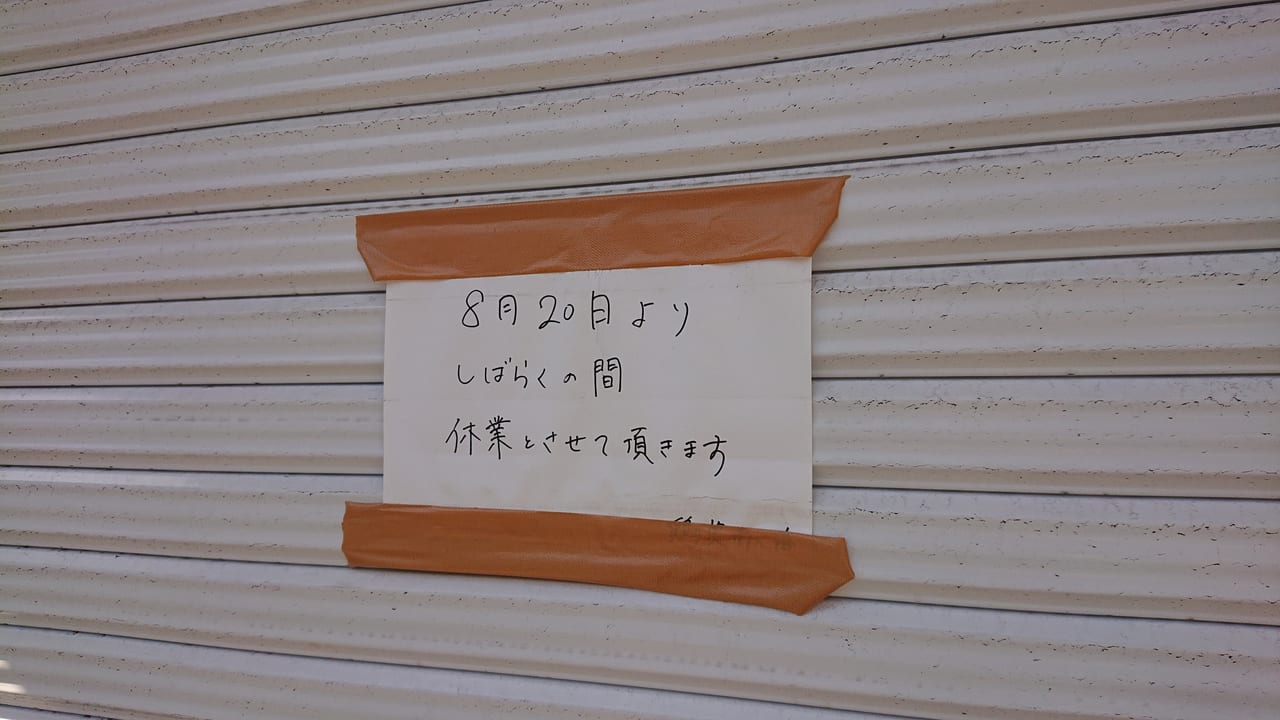 8月20日より
しばらくの間
休業とさせて頂きます